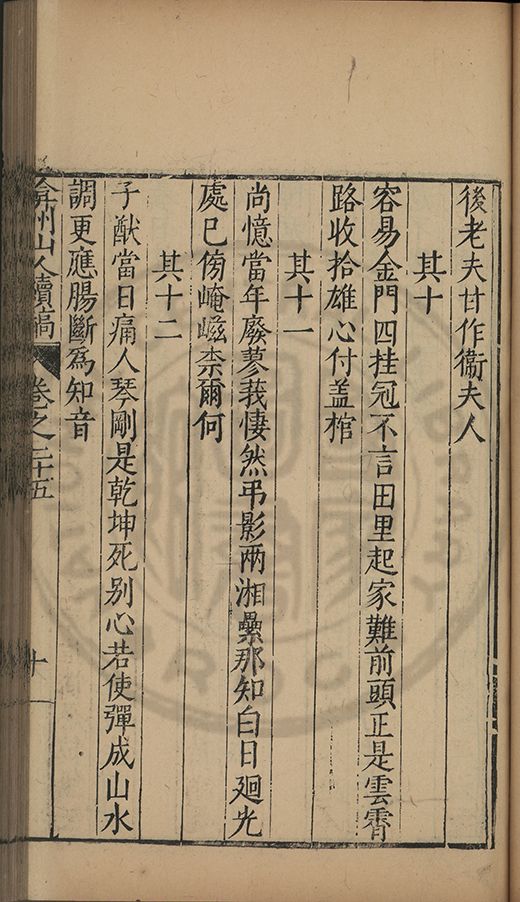 後老夫甘作衞夫人
其十
容易金門四挂冠不言田里起家難前頭正是雲霄
路收拾雄心付盖棺
其十一
尚憶當年廢蓼莪悽然弔影兩湘纍那知白日廻光
處已傍崦嵫柰爾何
其十二
子猷當日痛人琴剛是乾坤死别心若使彈成山水
調更應腸斷爲知音
弇州山人續稿 卷之二十五 十